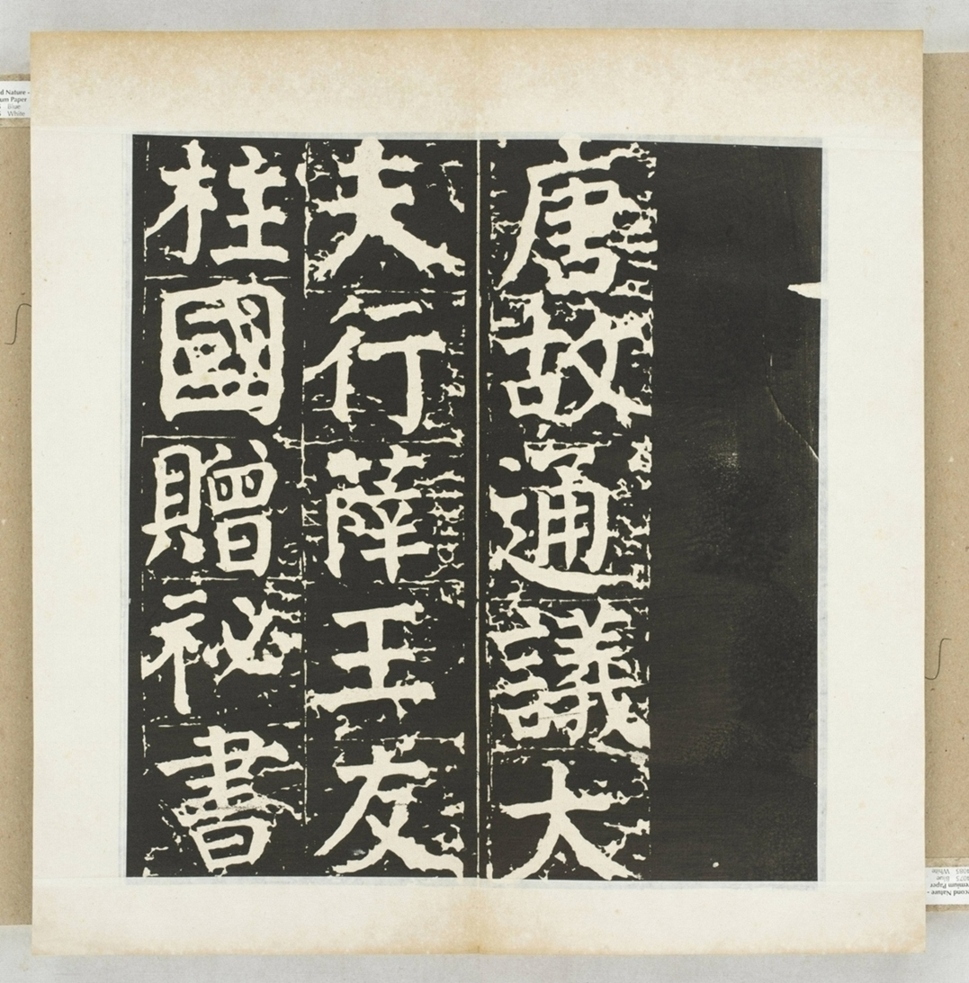 唐故通議大
夫行薛王友
柱國贈祕書
d Nature -
um Paper
Blue
White
econd Nature -
remium Paper
Blue
White